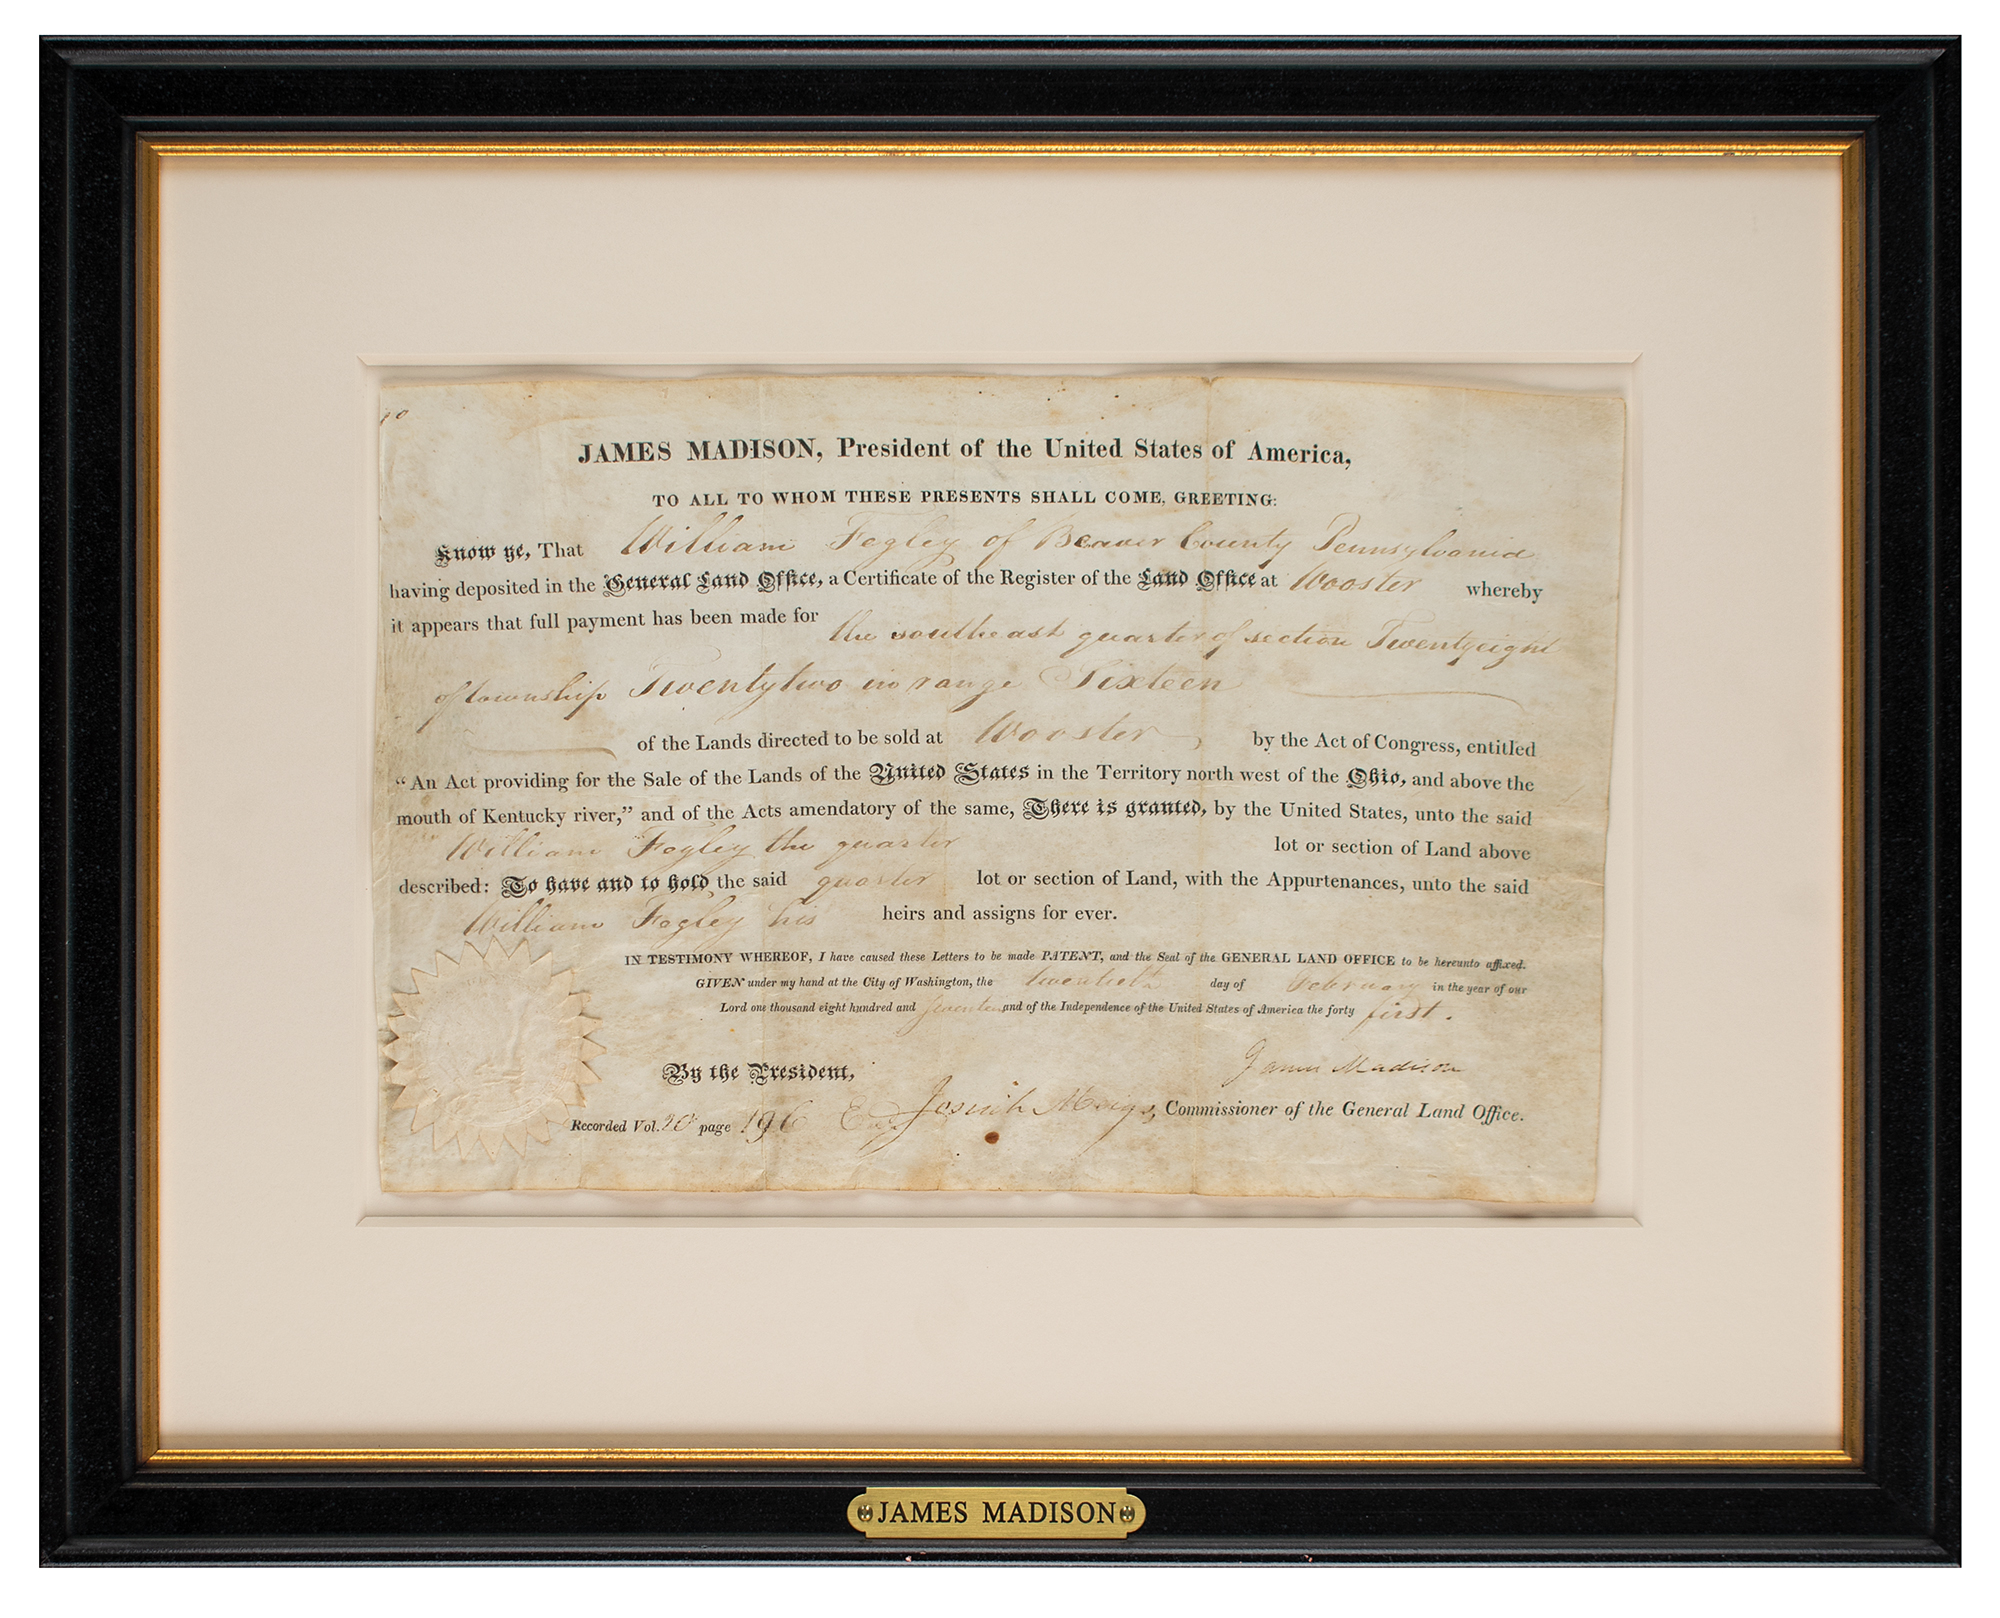 JAMES MADISON, President of the United States of America,
TO ALL TO WHOM THESE PRESENTS SHALL COME, GREETING:
Know ye, That William Fogley of Beaver County Pennsylvania
having deposited in the General Land Office, a Certificate of the Register of the Land Office at Wooster whereby
it appears that full payment has been made for the southeast quarter of section Twentyeight
of township Twentytwo in range Sixteen
of the Lands directed to be sold at Wooster by the Act of Congress, entitled
“An Act providing for the Sale of the Lands of the United States in the Territory north west of the Ohio, and above the
mouth of Kentucky river,” and of the Acts amendatory of the same, There is granted, by the United States, unto the said
William Fogley the quarter lot or section of Land above
described: To have and to hold the said quarter lot or section of Land, with the Appurtenances, unto the said
William Fogley his heirs and assigns for ever.
IN TESTIMONY WHEREOF, I have caused these Letters to be made PATENT, and the Seal of the GENERAL LAND OFFICE to be hereunto affixed.
GIVEN under my hand at the City of Washington, the twentieth day of February in the year of our
Lord one thousand eight hundred and seventeen and of the Independence of the United States of America the forty first.
James Madison
By the President,
Josiah Meigs, Commissioner of the General Land Office.
Recorded Vol. 20 page 196
JAMES MADISON